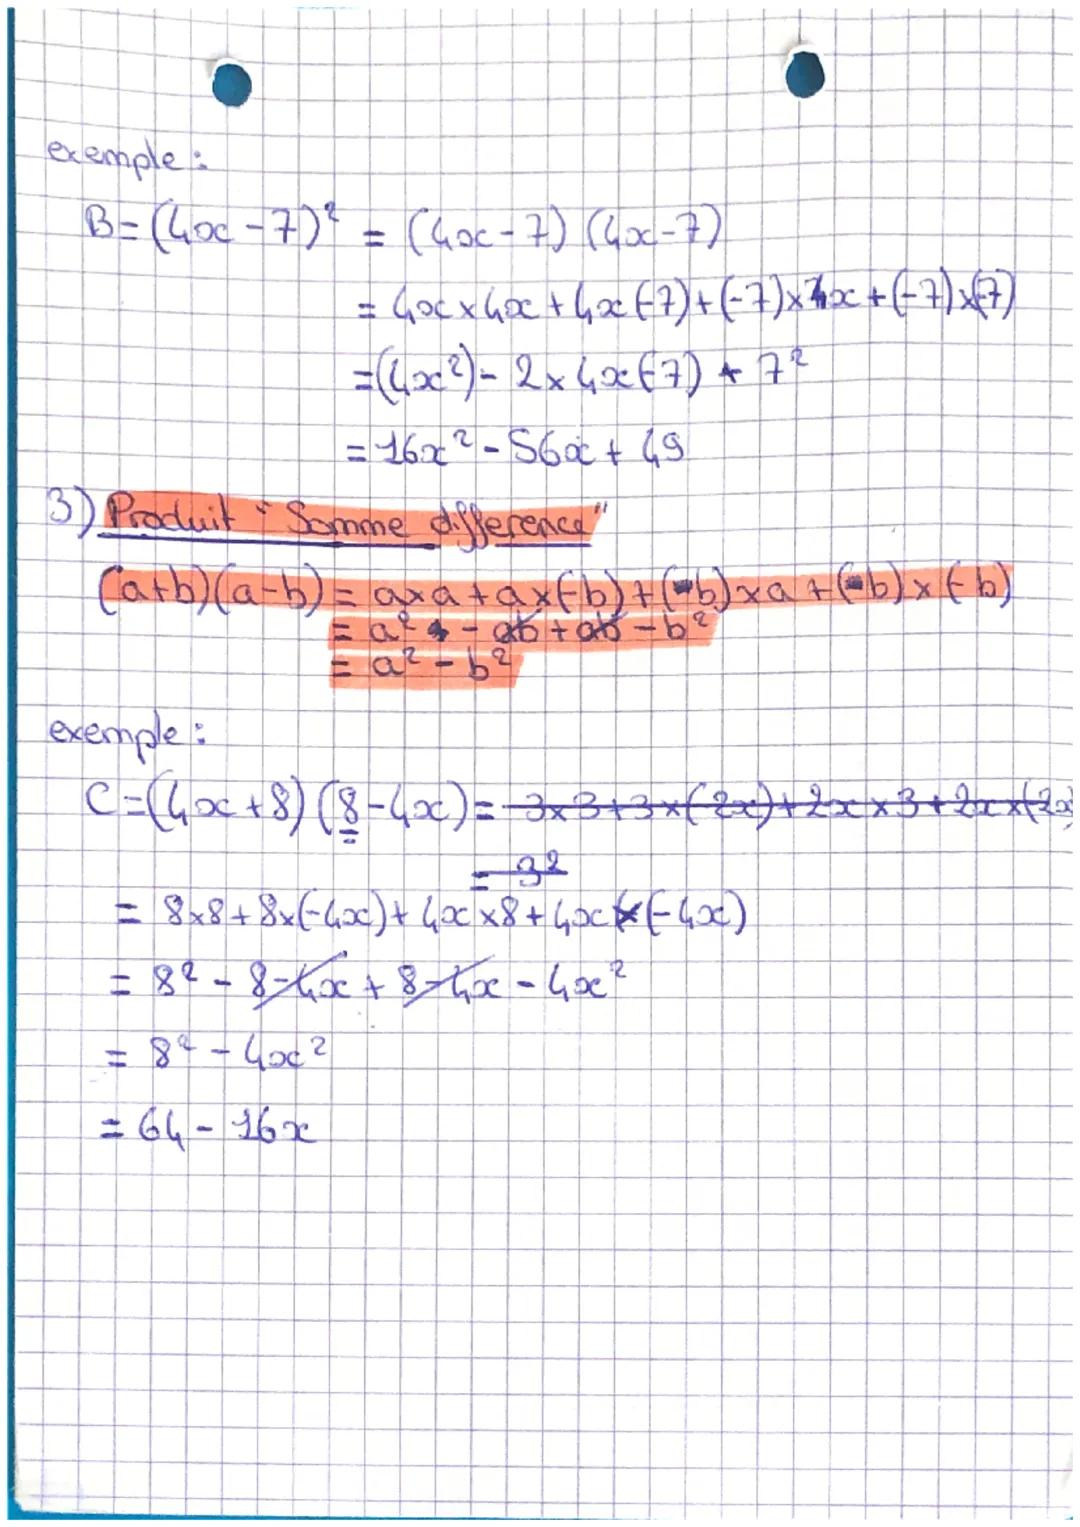 exemple :
B = (4x - 7)² = (4x - 7) (4x - 7)
= 4x × 4x + 4x (-7) + (-7) × 4x + (-7) × (-7)
= (4x²) - 2 × 4x (-7) + 7²
= 16x² - 56x + 49
3) Produit "Somme difference"
(a+b)(a-b) = a×a + a×(-b) + (b) × a + (b) × (-b)
= a² - ab + ab - b²
= a² - b²
exemple :
C = (4x + 8) (8 - 4x) = 3×3 + 3×(-2x) + 2x × 3 + 2x × (-2x)
= 3²
= 8×8 + 8×(-4x) + 4x × 8 + 4x × (-4x)
= 8² - 8-4x + 8-4x - 4x²
= 8² - 4x²
= 64 - 16x